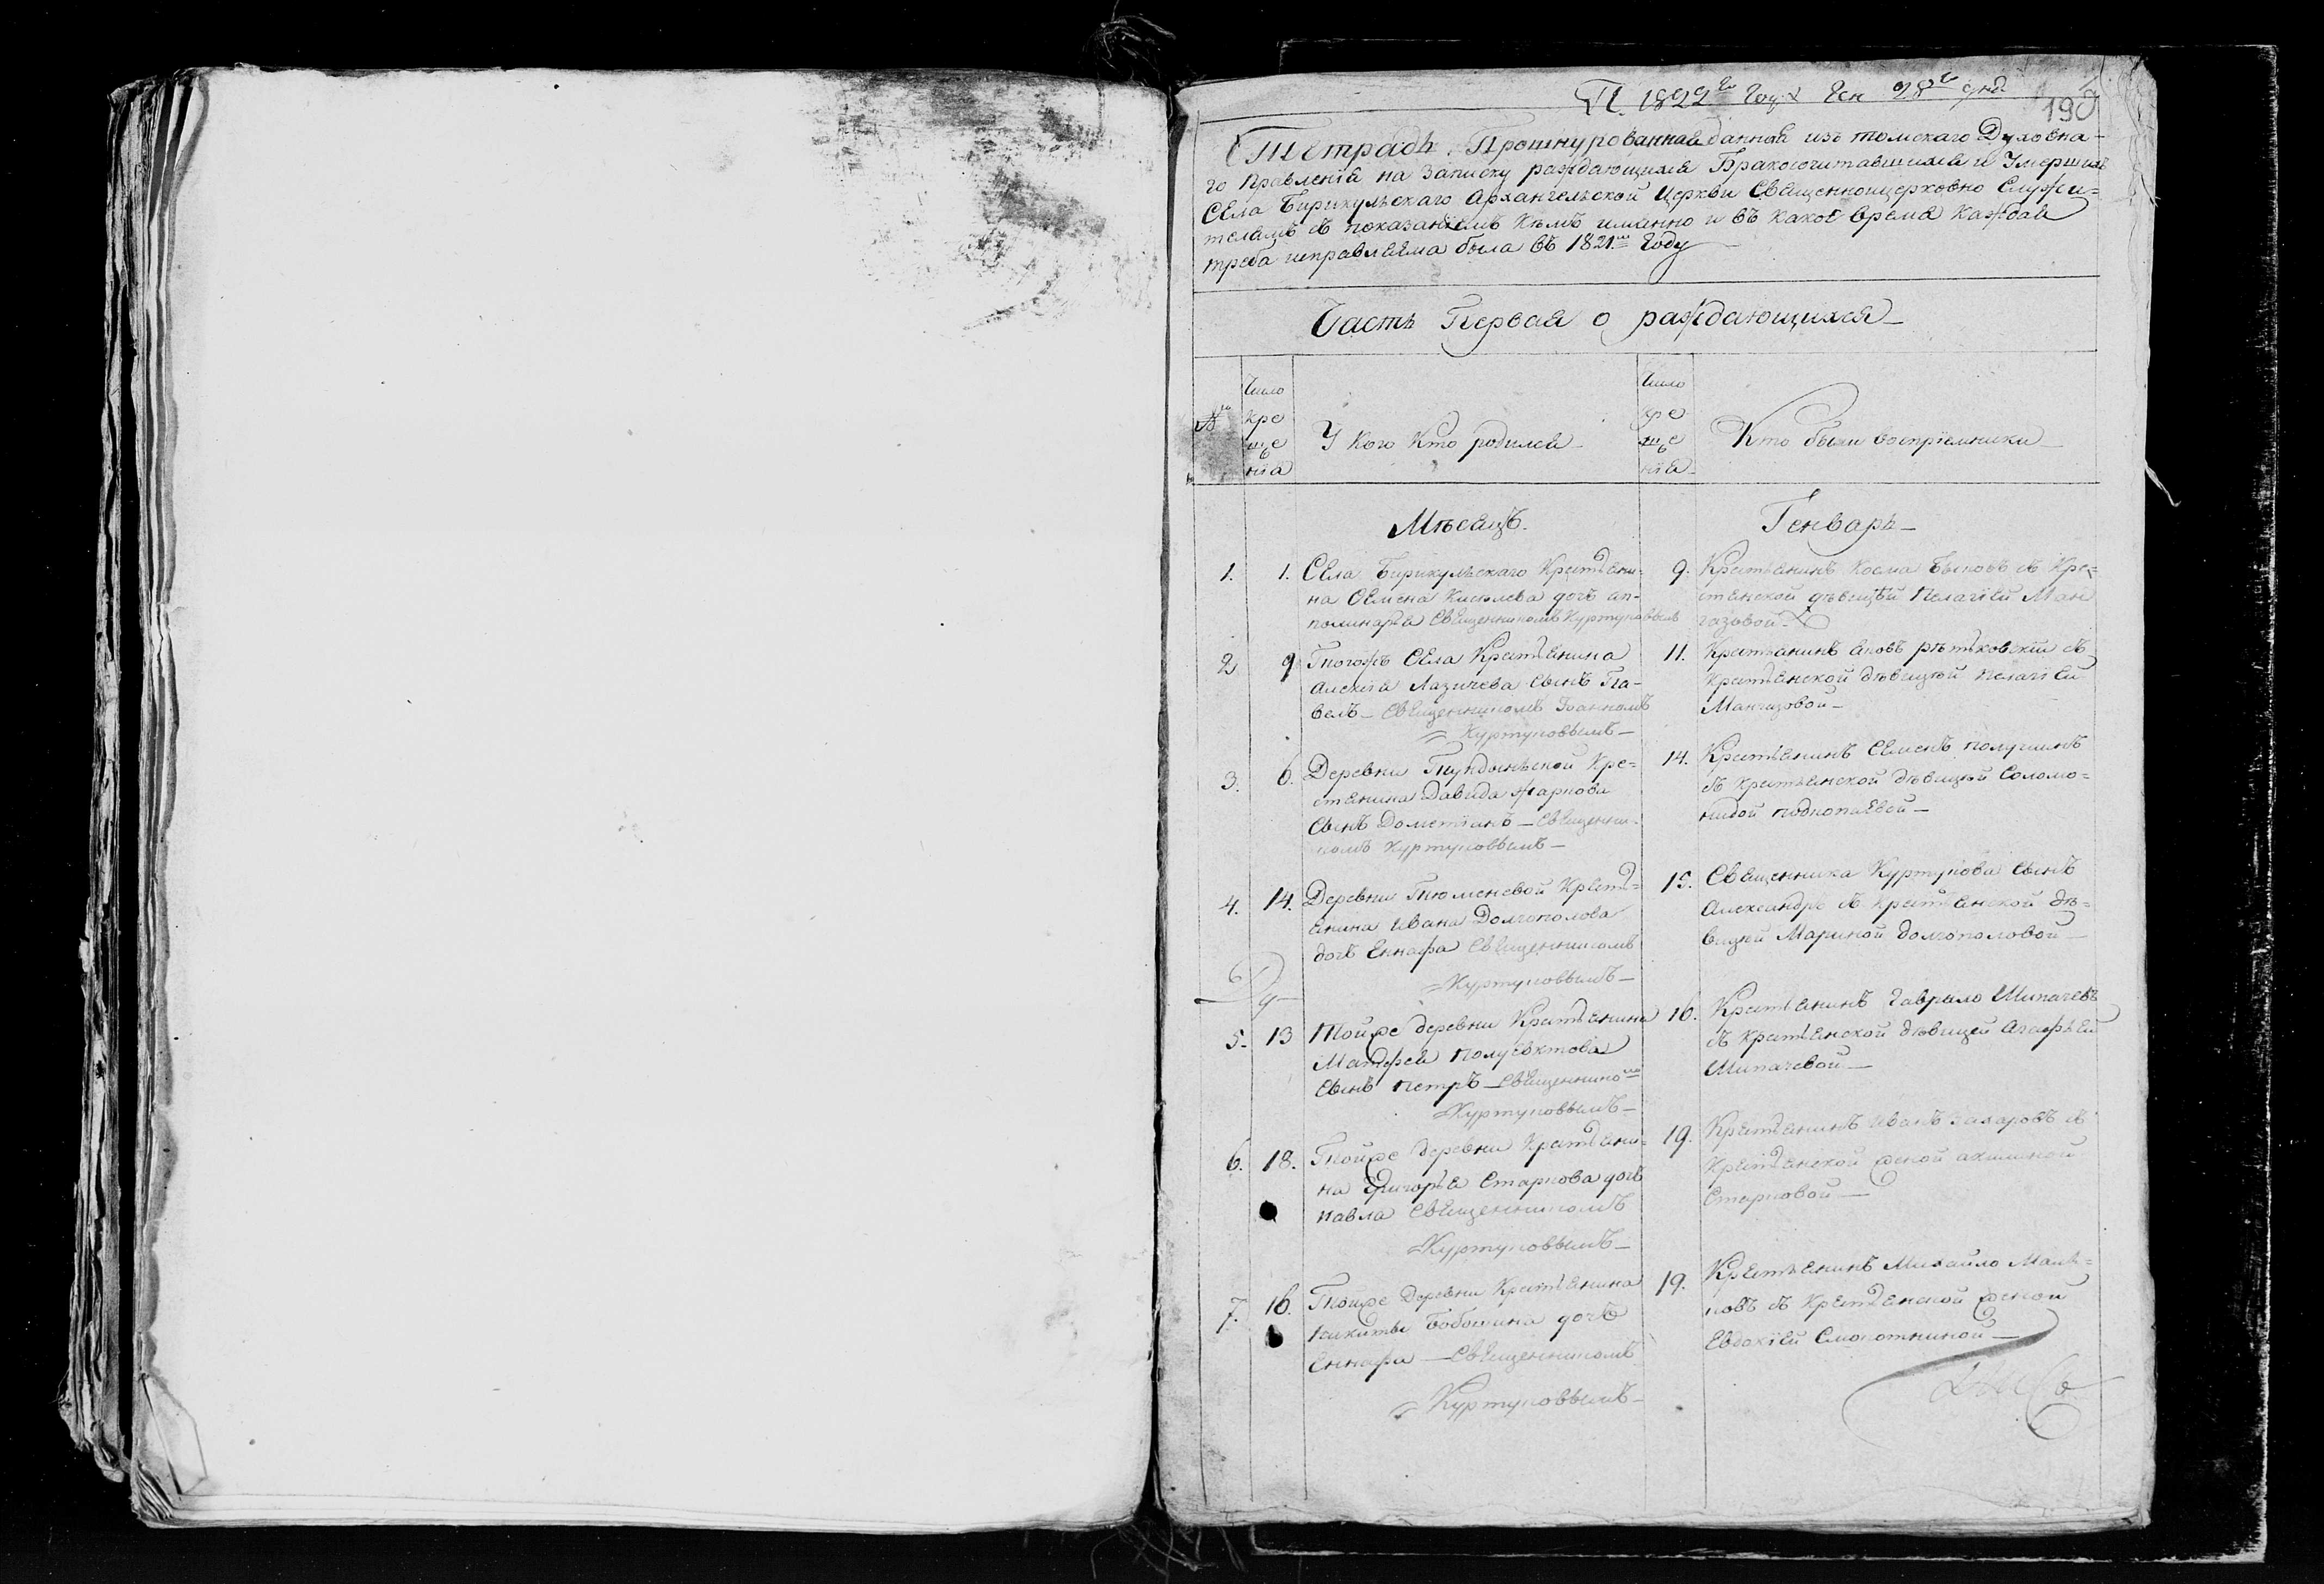 П. 1822го Года Ген 28го дня
190
Тетрадь Прошнурованная данная изъ томскаго Духовна-
го Правленія на Записку раждающихся Бракосочитавшихся и Умершихъ
Села Бирикульскаго Архангельской Церкви Священноцерковно Служи-
телямъ съ показаніемъ кемъ имянно и въ какое время каждая
треба исправляема была въ 1821м Году
Часть Первая о раждающихся
№
Число
кре
ще
нія
У Кого Кто родился
Число
кре
ще
нія
Кто были воспріемники
Мѣсяцъ.
Генварь
1. 1. Села Бирикульскаго Крестьяни-
на Семена Киселева дочь ап-
полинарія Священникомъ Куртуковымъ
9. Крестьянинъ Косма Быковъ съ Кре-
стьянской дѣвицѣй Пелагіей Ман
газовой
2 9 Тогожъ Села Крестьянина
Алексія Лазичева сынъ Па-
велъ Священникомъ Іоанномъ
Куртуковымъ
11. Крестьянинъ Яковъ рѣтковскій съ
Крестьянской дѣвицѣй пелагіей
Мангазовой
3. 6. Деревни Тундинской Кре-
стьянина Давида Жаркова
сынъ Дометіанъ Священни-
комъ Куртуковымъ
14. Крестьянинъ Семенъ
съ Крестьянской дѣвицѣй Соломо-
нидой подкопаевой
4. 14. Деревни Тюменевой Крест-
янина Ивана Долгополова
дочь Еннафа Священникомъ
Куртуковымъ
15. Священника Куртукова сынъ
Александръ съ Крестьянской дѣ-
вицѣй Мариной долгополовой
5. 13 Тойже деревни Крестьянина
Матфея Полуектова
сынъ петръ Священникомъ
Куртуковымъ
16. Крестьянинъ Гаврило Шипачевъ
съ Крестьянской дѣвицей Агафьей
Шипачевой
6. 18. Тойже деревни Крестьяни-
на Григорья Старкова дочь
павла Священникомъ
Куртуковымъ
19. Крестьянинъ Иванъ захаровъ съ
Крестьянской женой акилиной
Старковой
7. 16. Тойже Деревни Крестьянина
никиты Бобошина дочь
Еннафа Священникомъ
Куртуковымъ
19. Крестьянинъ Михайло Маль-
ковъ съ Крестьянской женой
Евдокіей Смокотниной